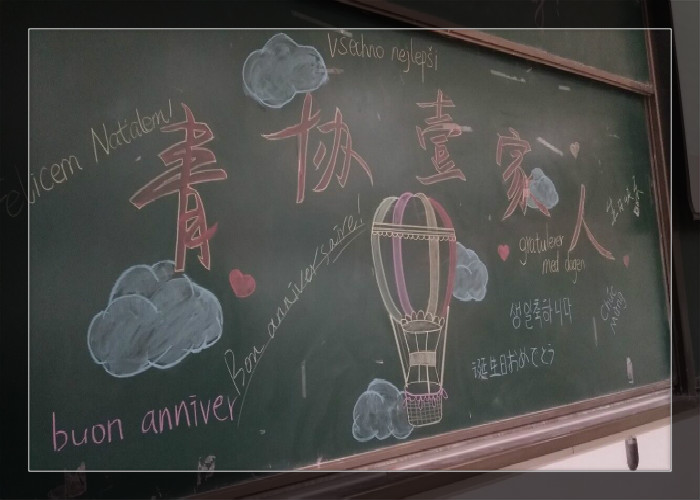 Všechno nejlepší
elicem Natalem!
青协壹家人
Bon anniversaire!
gratulerer
med dagen
생일축하니다
誕生日おめでとう
buon anniver